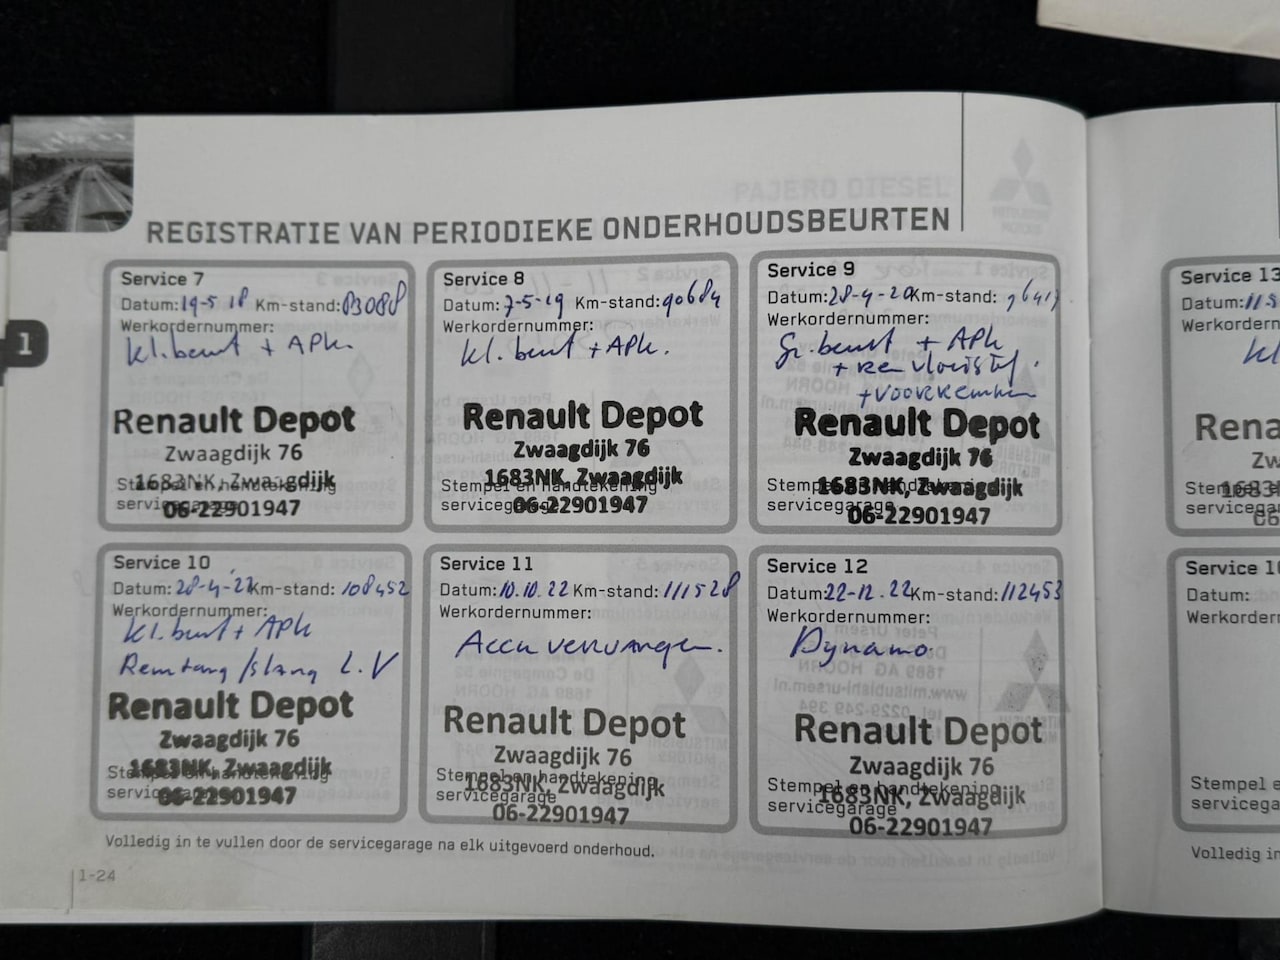 REGISTRATIE VAN PERIODIEKE ONDERHOUDSBEURTEN
1
Service 7
Datum: 19-5 18 Km-stand: 83088
Werkordernummer:
kl.beurt + APK.
Renault Depot
Zwaagdijk 76
1683NK, Zwaagdijk
Stempel en handtekening
servicegarage
06-22901947
Service 8
Datum: 7-5-19 Km-stand: 90684
Werkordernummer:
kl. beurt + APK.
Renault Depot
Zwaagdijk 76
1683NK, Zwaagdijk
Stempel en handtekening
servicegarage
06-22901947
Service 9
Datum: 28-4-20 Km-stand:
Werkordernummer:
Gr. beurt + APK
+ remvloeistof.
+ voorremmen
Renault Depot
Zwaagdijk 76
1683NK, Zwaagdijk
Stempel en handtekening
servicegarage
06-22901947
Service 10
Datum: 28-4-22 Km-stand: 108452
Werkordernummer:
kl. beurt + APK
Remtang/slang L.V
Renault Depot
Zwaagdijk 76
1683NK, Zwaagdijk
Stempel en handtekening
servicegarage
06-22901947
Service 11
Datum: 10.10.22 Km-stand: 111528
Werkordernummer:
Accu vervangen.
Renault Depot
Zwaagdijk 76
Stempel en handtekening
1683NK, Zwaagdijk
servicegarage
06-22901947
Service 12
Datum: 22-12.22 Km-stand: 112453
Werkordernummer:
Dynamo.
Renault Depot
Zwaagdijk 76
Stempel en handtekening
1683NK, Zwaagdijk
servicegarage
06-22901947
Volledig in te vullen door de servicegarage na elk uitgevoerd onderhoud.
1-24
Service 13
Datum: 11-5
Werkordern
kl
Rena
Zw
1683
Stem
servicega
06
Service 1
Datum:
Werkordern
Stempel e
servicega
Volledig in